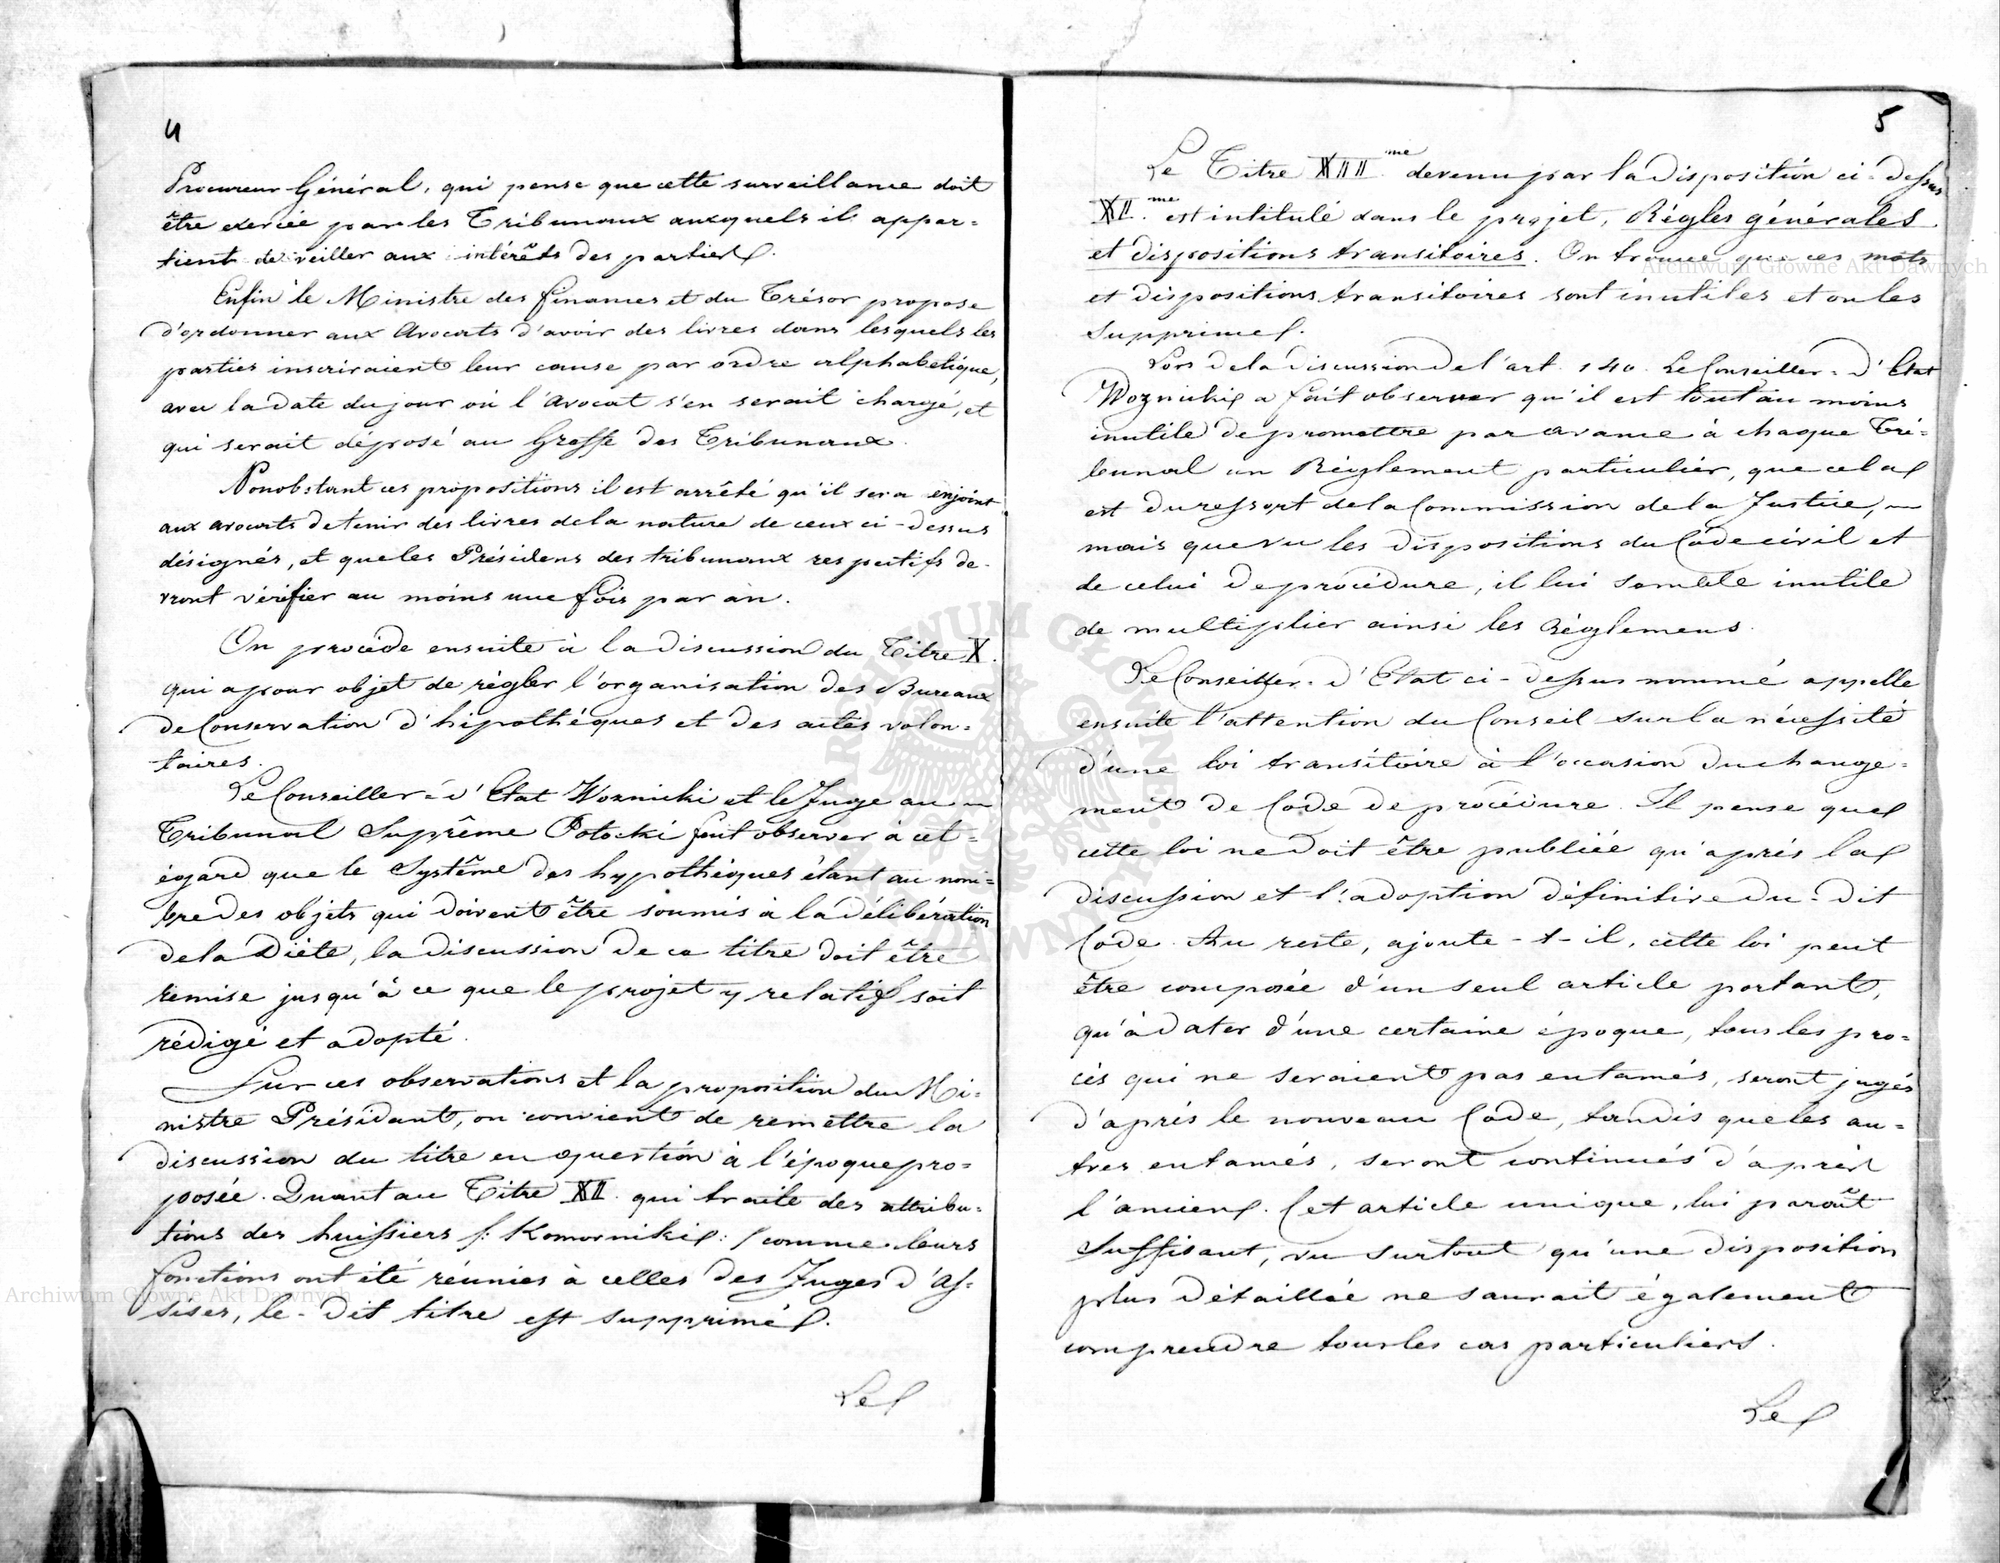 4
Procureur Général, qui pense que cette surveillance doit
être exercée par les Tribunaux auxquels il appar=
tient de veiller aux intérêts des parties.
Enfin le Ministre des finances et du Trésor propose
d'ordonner aux Avocats d'avoir des livres dans lesquels les
parties inscriraient leur cause par ordre alphabetique,
avec la date du jour où l'Avocat s'en serait chargé, et
qui serait déposé au Greffe des Tribunaux.
Nonobstant ces propositions il est arrêté qu'il sera enjoint
aux avocats de tenir des livres de la nature de ceux ci-dessus
désignés, et que les Présidens des tribunaux respectifs de-
vront vérifier au moins une fois par an.
On procède ensuite à la discussion du Titre X.
qui a pour objet de règler l'organisation des Bureaux
de Conservation d'hipothéques et des actes volon=
taires.
Le Conseiller-d'Etat Woznicki et le Juge au
Tribunal Suprême Potocki font observer à cet
égard que le Système des hypothéques étant au nom=
bre des objets qui doivent être soumis à la délibération
de la Diète, la discussion de ce titre doit être
remise jusqu'à ce que le projet y relatif soit
rédigé et adopté.
Sur ces observations et la proposition du Mi=
nistre Présidant, on convient de remettre la
discussion du titre en question à l'époque pro=
posée. Quant au Titre XII. qui traite des attribu=
tions des huissiers /: Komorniki :/ comme leurs
fonctions ont été réunies à celles des Juges d'As=
sises, le-dit titre est supprimé.
Le
5
Le Titre XIII me devenu par la disposition ci-dessus
XII me est intitulé dans le projet, Régles générales
et dispositions transitoires. On trouve que ces mots
et dispositions transitoires sont inutiles et on les
supprime.
Lors de la discussion de l'art. 140. Le Conseiller-d'Etat
Woznicki a fait observer qu'il est tout au moins
inutile de promettre par avance à chaque Tri=
bunal un Réglement particulier, que cela
est du ressort de la Commission de la Justice,
mais que vu les dispositions du Code civil et
de celui de procédure, il lui semble inutile
de multiplier ainsi les Réglemens.
Le Conseiller-d'Etat ci-dessus nommé appelle
ensuite l'attention du Conseil sur la nécessité
d'une loi transitoire à l'occasion du change=
ment de Code de procédure. Il pense que
cette loi ne doit être publiée qu'après la
discussion et l'adoption définitive du-dit
Code. Au reste, ajoute-t-il, cette loi peut
être composée d'un seul article portant,
qu'à dater d'une certaine époque, tous les pro=
cès qui ne seraient pas entamés, seront jugés
d'après le nouveau Code, tandis que les au=
tres entamés, seront continués d'après
l'ancien. Cet article unique, lui paroît
suffisant, vu surtout qu'une disposition
plus détaillée ne saurait également
comprendre tous les cas particuliers.
Le
Archiwum Główne Akt Dawnych
Archiwum Główne Akt Dawnych
ARCHIWUM GŁÓWNE AKT DAWNYCH